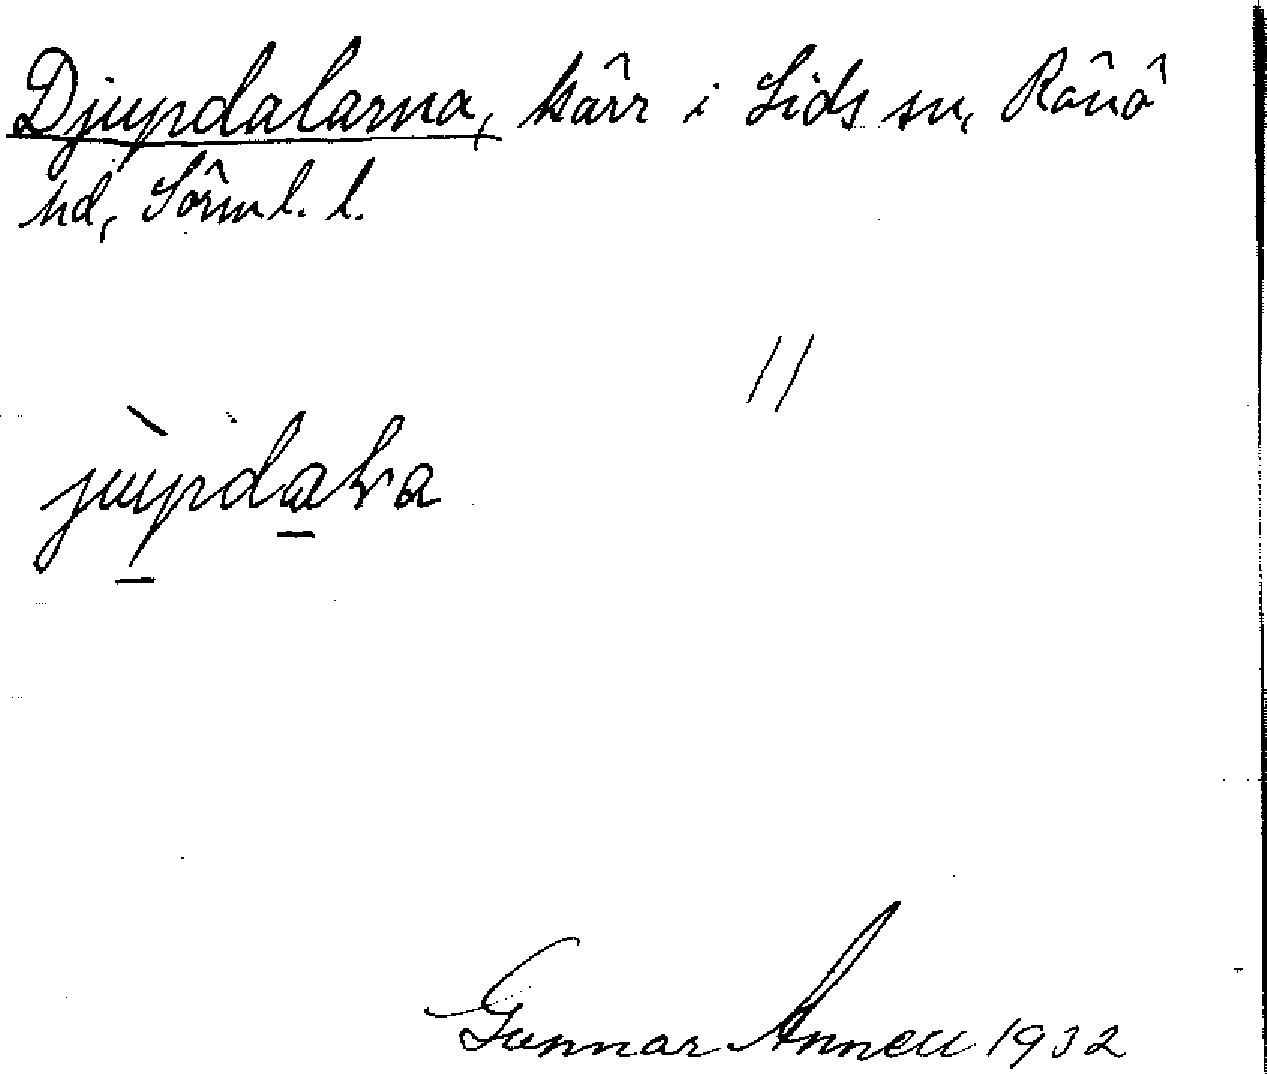 Djupdalarna, kärr i Lids sn, Rönö
hd, Sörml. l.
//
jùpdalra
Gunnar Annell 1932